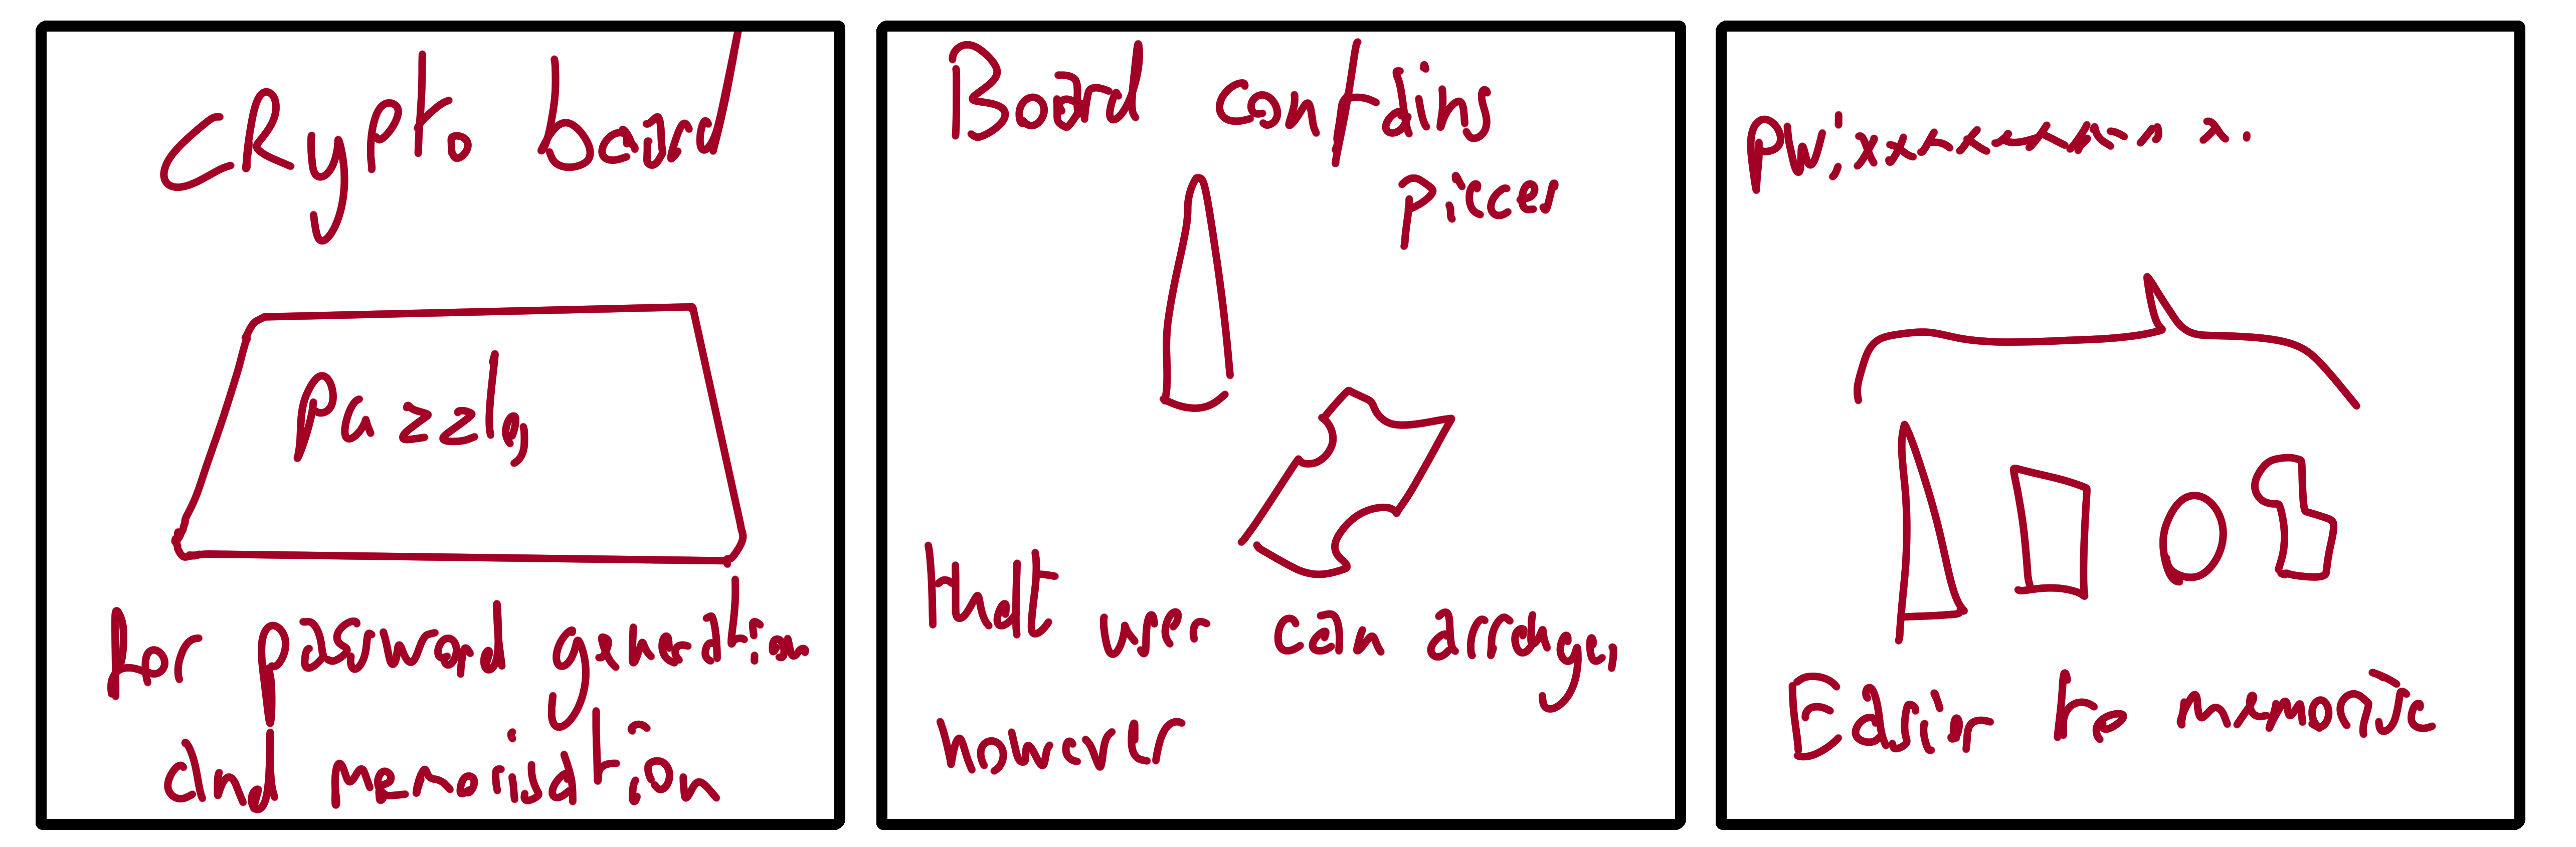 CRypto board
Puzzle
for password generation
and memorisation
Board contains
pieces
that user can arrange,
however
PW: xxxxxxxxxx x.
Easier to memorise